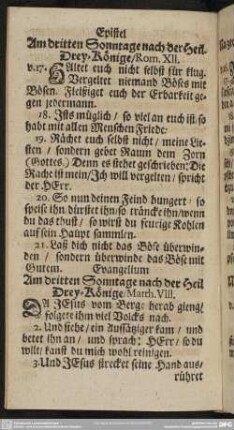 Epistel
Am dritten Sonntage nach der Heil.
Drey-Könige/Rom. XII.
v.17. HAltet euch nicht selbst für klug.
Vergeltet niemand Böses mit
Bösen. Fleißiget euch der Erbarkeit ge-
gen jedermann.
18. Ists müglich / so viel an euch ist / so
habt mit allen Menschen Friede.
19. Rächet euch selbst nicht / meine Lie-
sten / sondern gebet Raum dem Zorn
(Gottes.) Denn es stehet geschrieben: Die
Rache ist mein / Ich will vergelten / spricht
der HErr.
20. So nun deinen Feind hungert / so
speise ihn / dürstet ihn / so träncke ihn / wenn
du das thust / so wirst du feurige Kohlen
auf sein Haupt sammlen.
21. Laß dich nicht das Böse überwin-
den / sondern überwinde das Böse mit
Gutem. Evangelium
Am dritten Sonntage nach der Heil
Drey-Könige / Matth. VIII.
DA JEsus vom Berge herab gieng /
folgete ihm viel Volcks nach.
2. Und siehe / ein Aussätziger kam / und
betet ihn an / und sprach: HErr / so du
wilt / kanst du mich wohl reinigen.
3. Und JEsus strecket seine Hand aus /
rühret